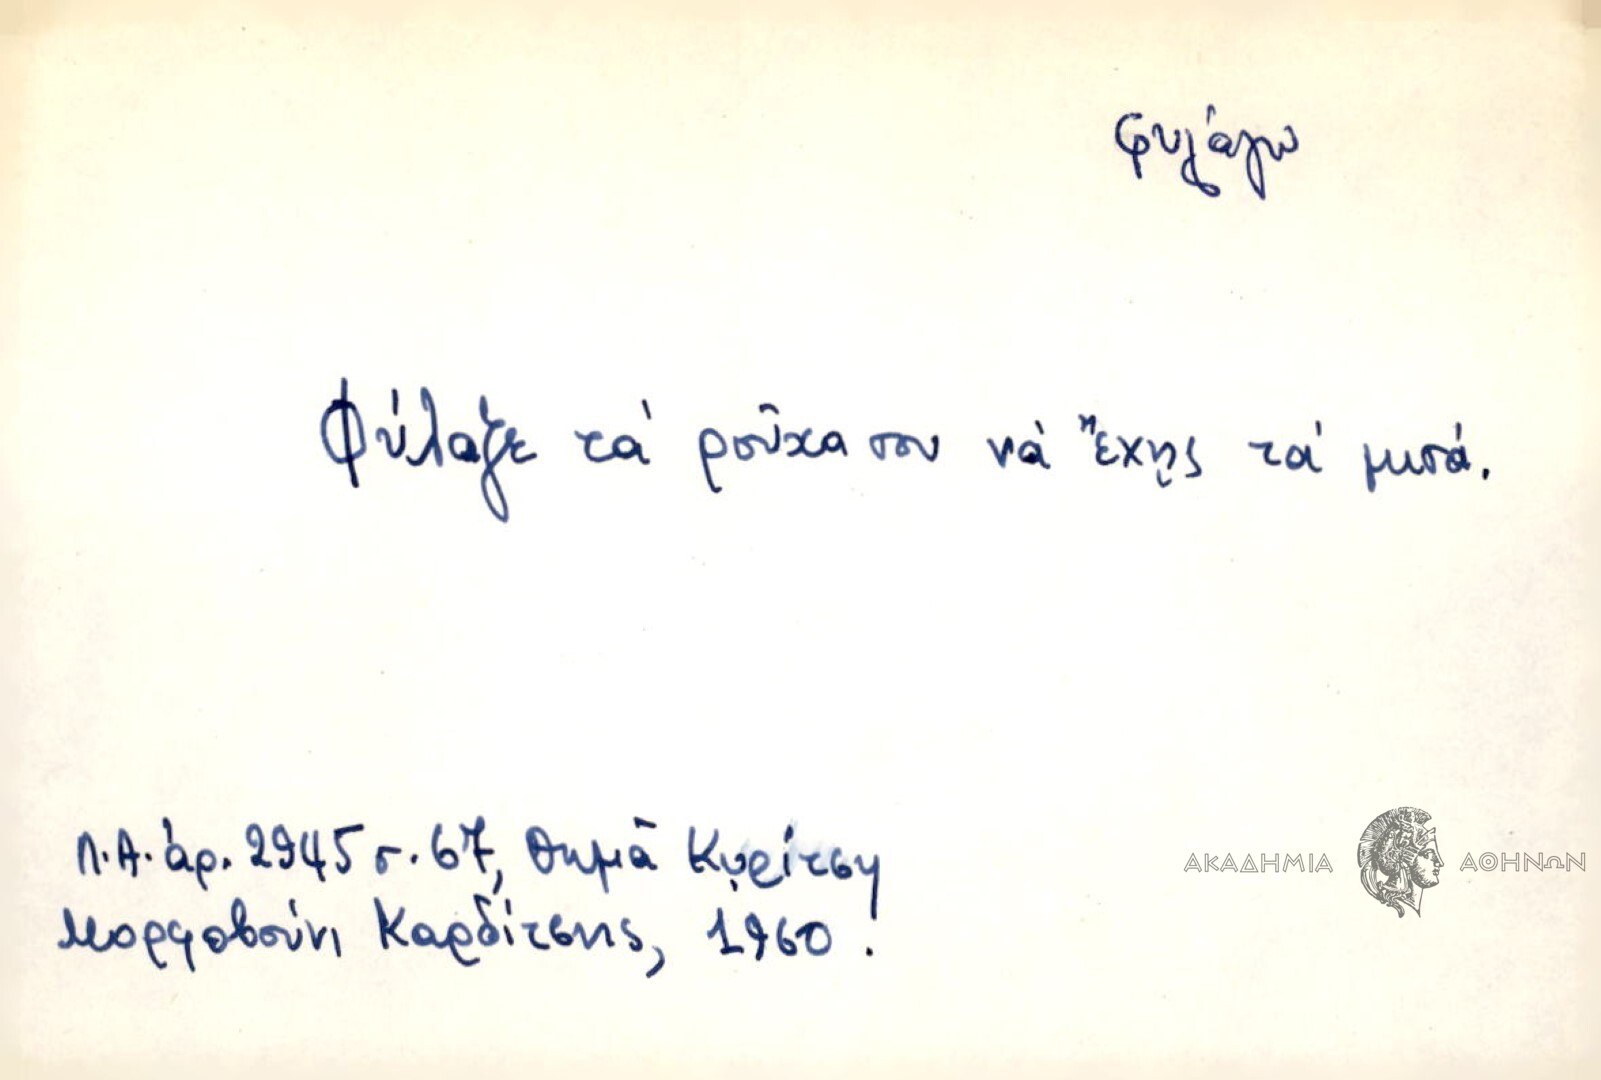 φυλάγω
Φύλαξε τά ροῦχα σου νὰ ἔχῃς τά μισά.
Λ.Α. ἀρ. 2945 σ. 67, Θωμᾶ Κυρίτση
Μορφοβούνι Καρδίτσης, 1960.
ΑΚΑΔΗΜΙΑ ΑΘΗΝΩΝ